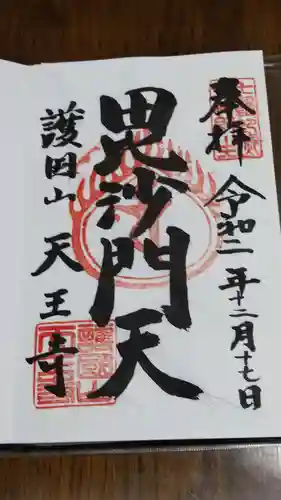 奉拝
令和二年十二月十七日
毘沙門天
護国山
天王寺